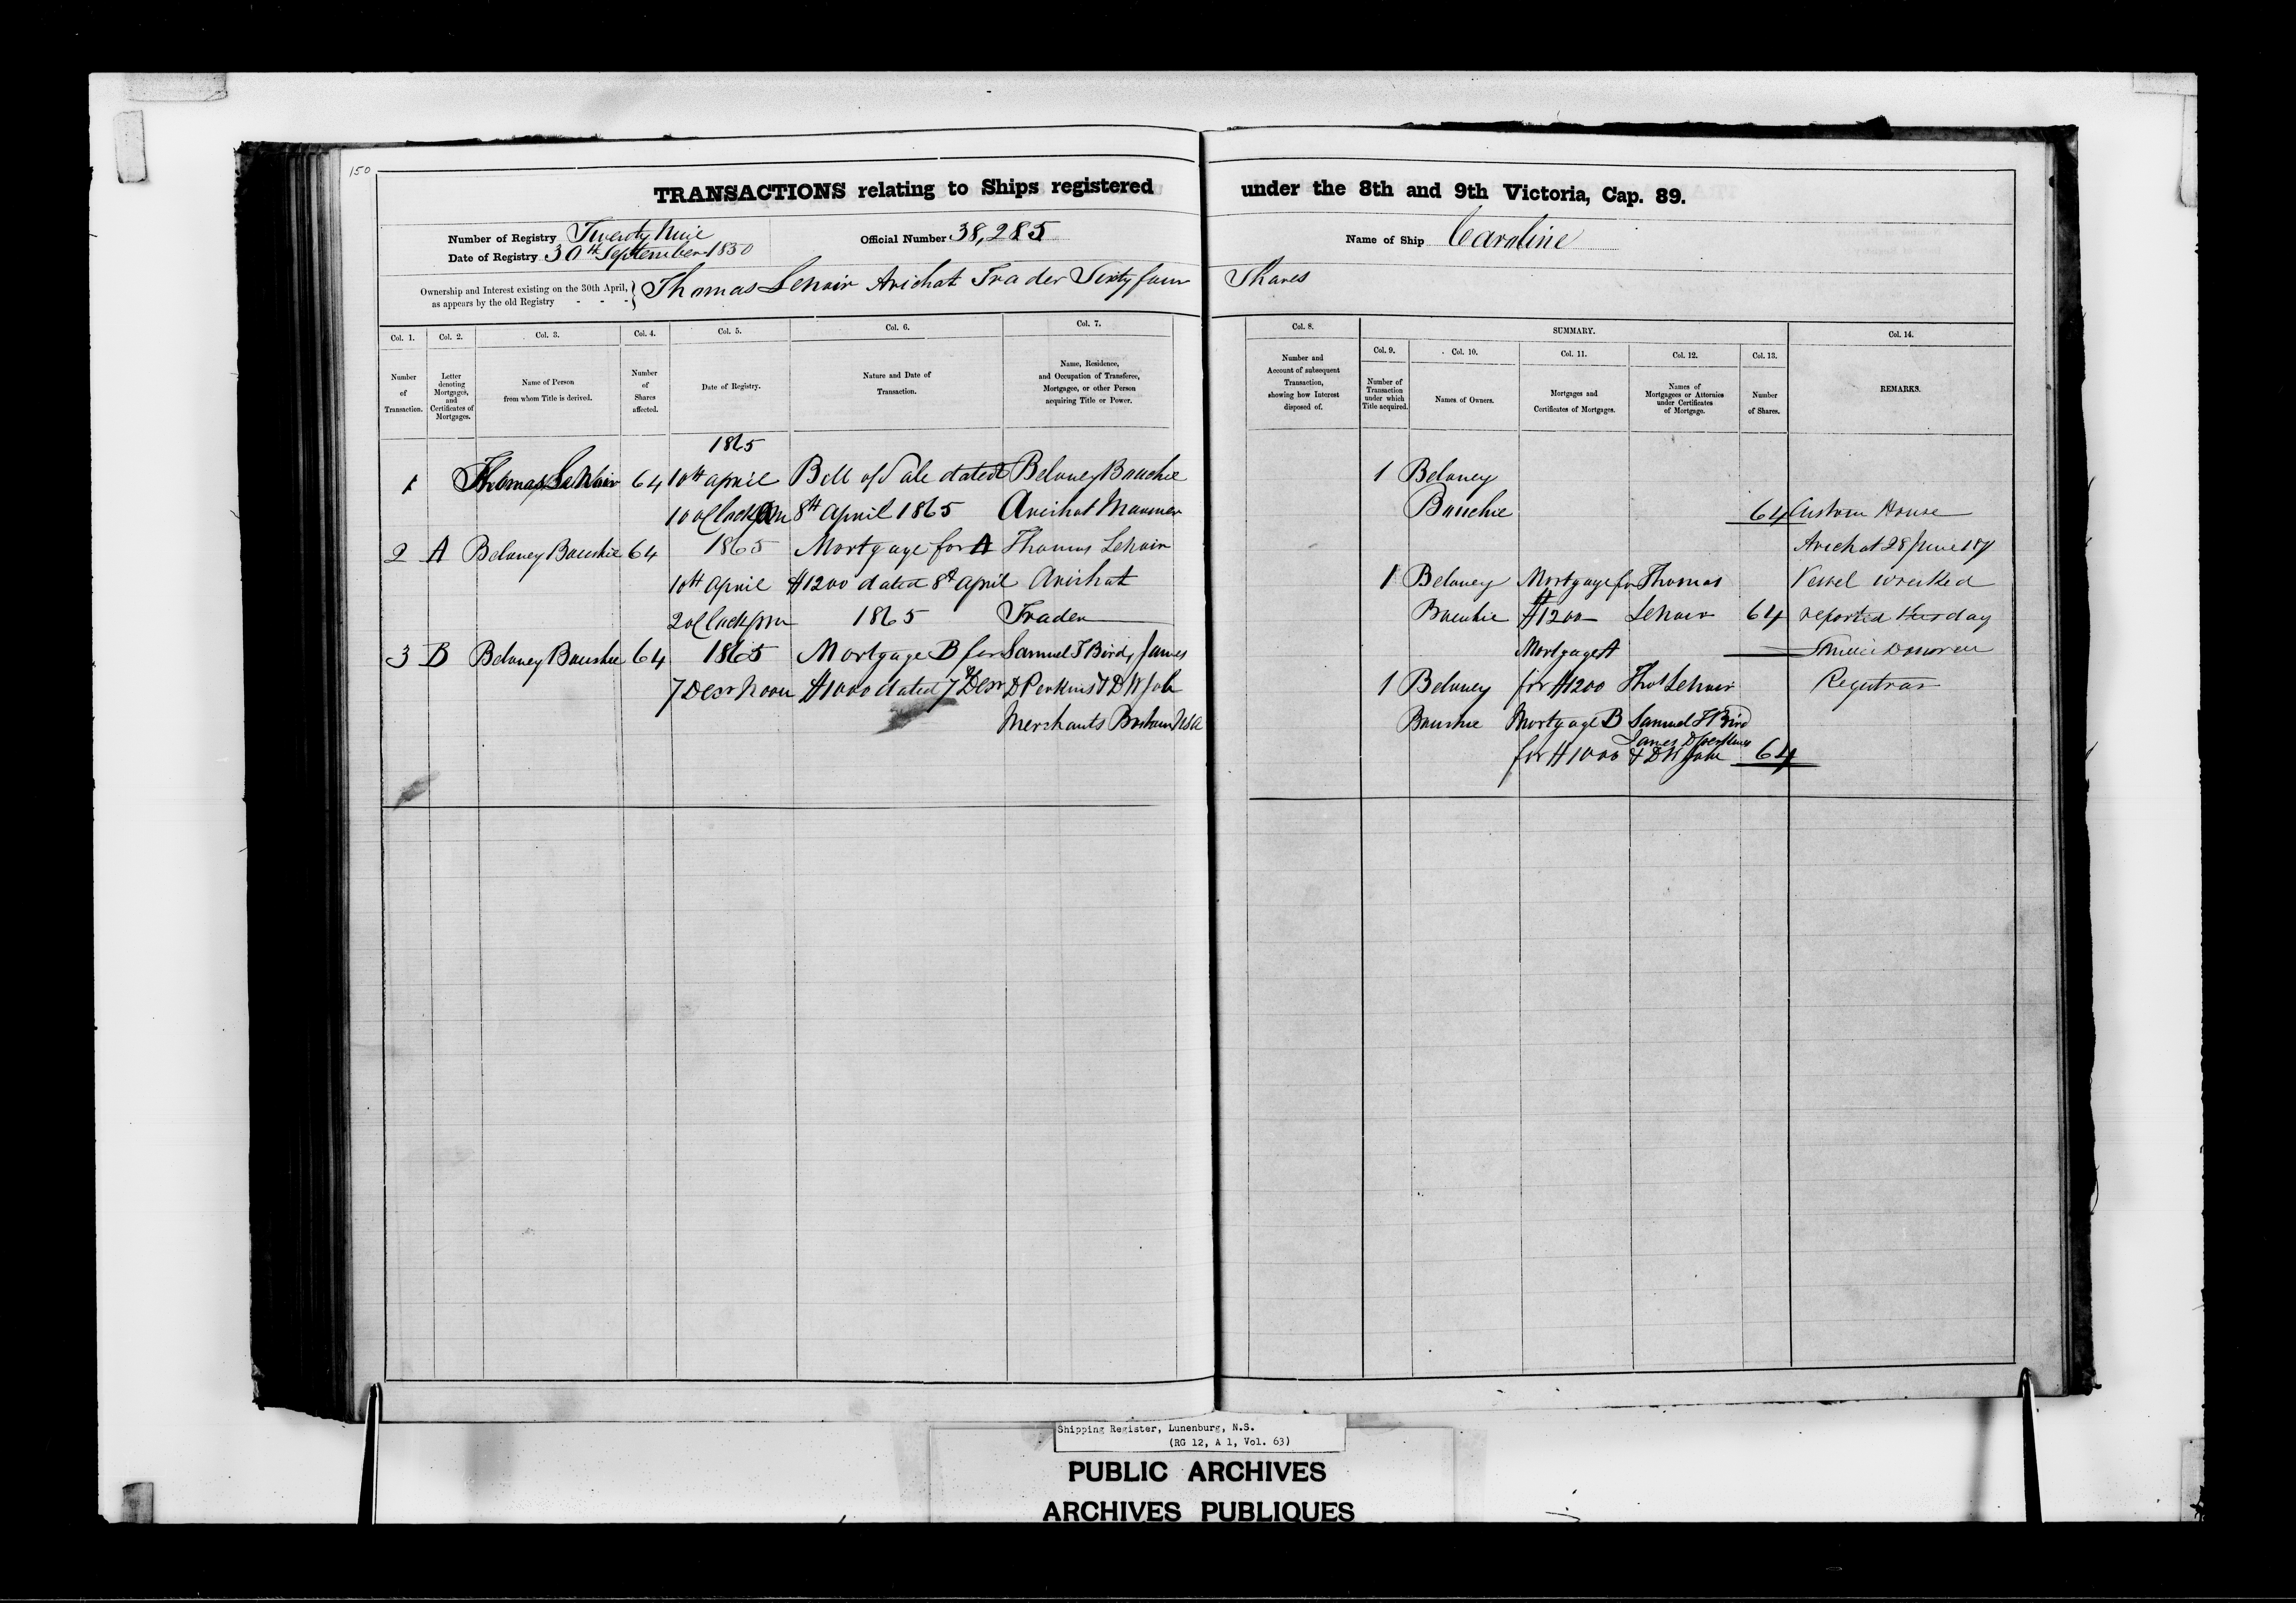 150
TRANSACTIONS relating to Ships registered under the 8th and 9th Victoria, Cap. 89.
Number of Registry Twenty Nine
Date of Registry 30th September 1850
Official Number 38,285
Name of Ship Caroline
Ownership and Interest existing on the 30th April,
as appears by the old Registry - - -
Thomas Lenoir Arichat Trader Sixty four Shares
Col. 1.
Number
of
Transaction.
Col. 2.
Letter
denoting
Mortgages,
and
Certificates of
Mortgages.
Col. 3.
Name of Person
from whom Title is derived.
Col. 4.
Number
of
Shares
affected.
Col. 5.
Date of Registry.
Col. 6.
Nature and Date of
Transaction.
Col. 7.
Name, Residence,
and Occupation of Transferee,
Mortgagee, or other Person
acquiring Title or Power.
1865
1 Thomas Lenoir 64 10th April Bill of Sale dated Beloney Bouchie
10 oClock 8th April 1865 Arichat Mariner
2 A Beloney Bouchie 64 1865 Mortgage for A Thomas Lenoir
10th April $1200 dated 8th April Arichat
2 oClock pm 1865 Trader
3 B Beloney Bouchie 64 1865 Mortgage B for Samuel T Bird, James
7 Decr Noon $1000 dated 7th Decr D Perkins & D W Job
Merchants Boston USA
Col. 8.
Number and
Account of subsequent
Transaction,
showing how Interest
disposed of.
SUMMARY.
Col. 9.
Number of
Transaction
under which
Title acquired.
Col. 10.
Names of Owners.
Col. 11.
Mortgages and
Certificates of Mortgages.
Col. 12.
Names of
Mortgagees or Attornies
under Certificates
of Mortgage.
Col. 13.
Number
of Shares.
Col. 14.
REMARKS.
1 Beloney
Bouchie 64
1 Beloney Mortgage for Thomas
Bouchie $1200 Lenoir 64
Mortgage A
1 Beloney for $1200 Thos Lenoir
Bouchie Mortgage B Samuel T Bird
James D Perkins
for $1000 & D W Job 64
Custom House
Arichat 28 June
Vessel wrecked
reported this day
Donovan
Registrar
Shipping Register, Lunenburg, N.S.
(RG 12, A 1, Vol. 63)
PUBLIC ARCHIVES
ARCHIVES PUBLIQUES